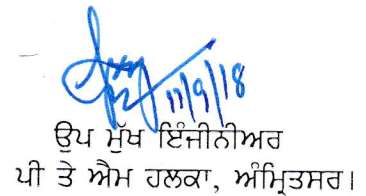 11/9/18
ਉਪ ਮੁੱਖ ਇੰਜੀਨੀਅਰ
ਪੀ ਤੇ ਐਮ ਹਲਕਾ, ਅੰਮ੍ਰਿਤਸਰ।